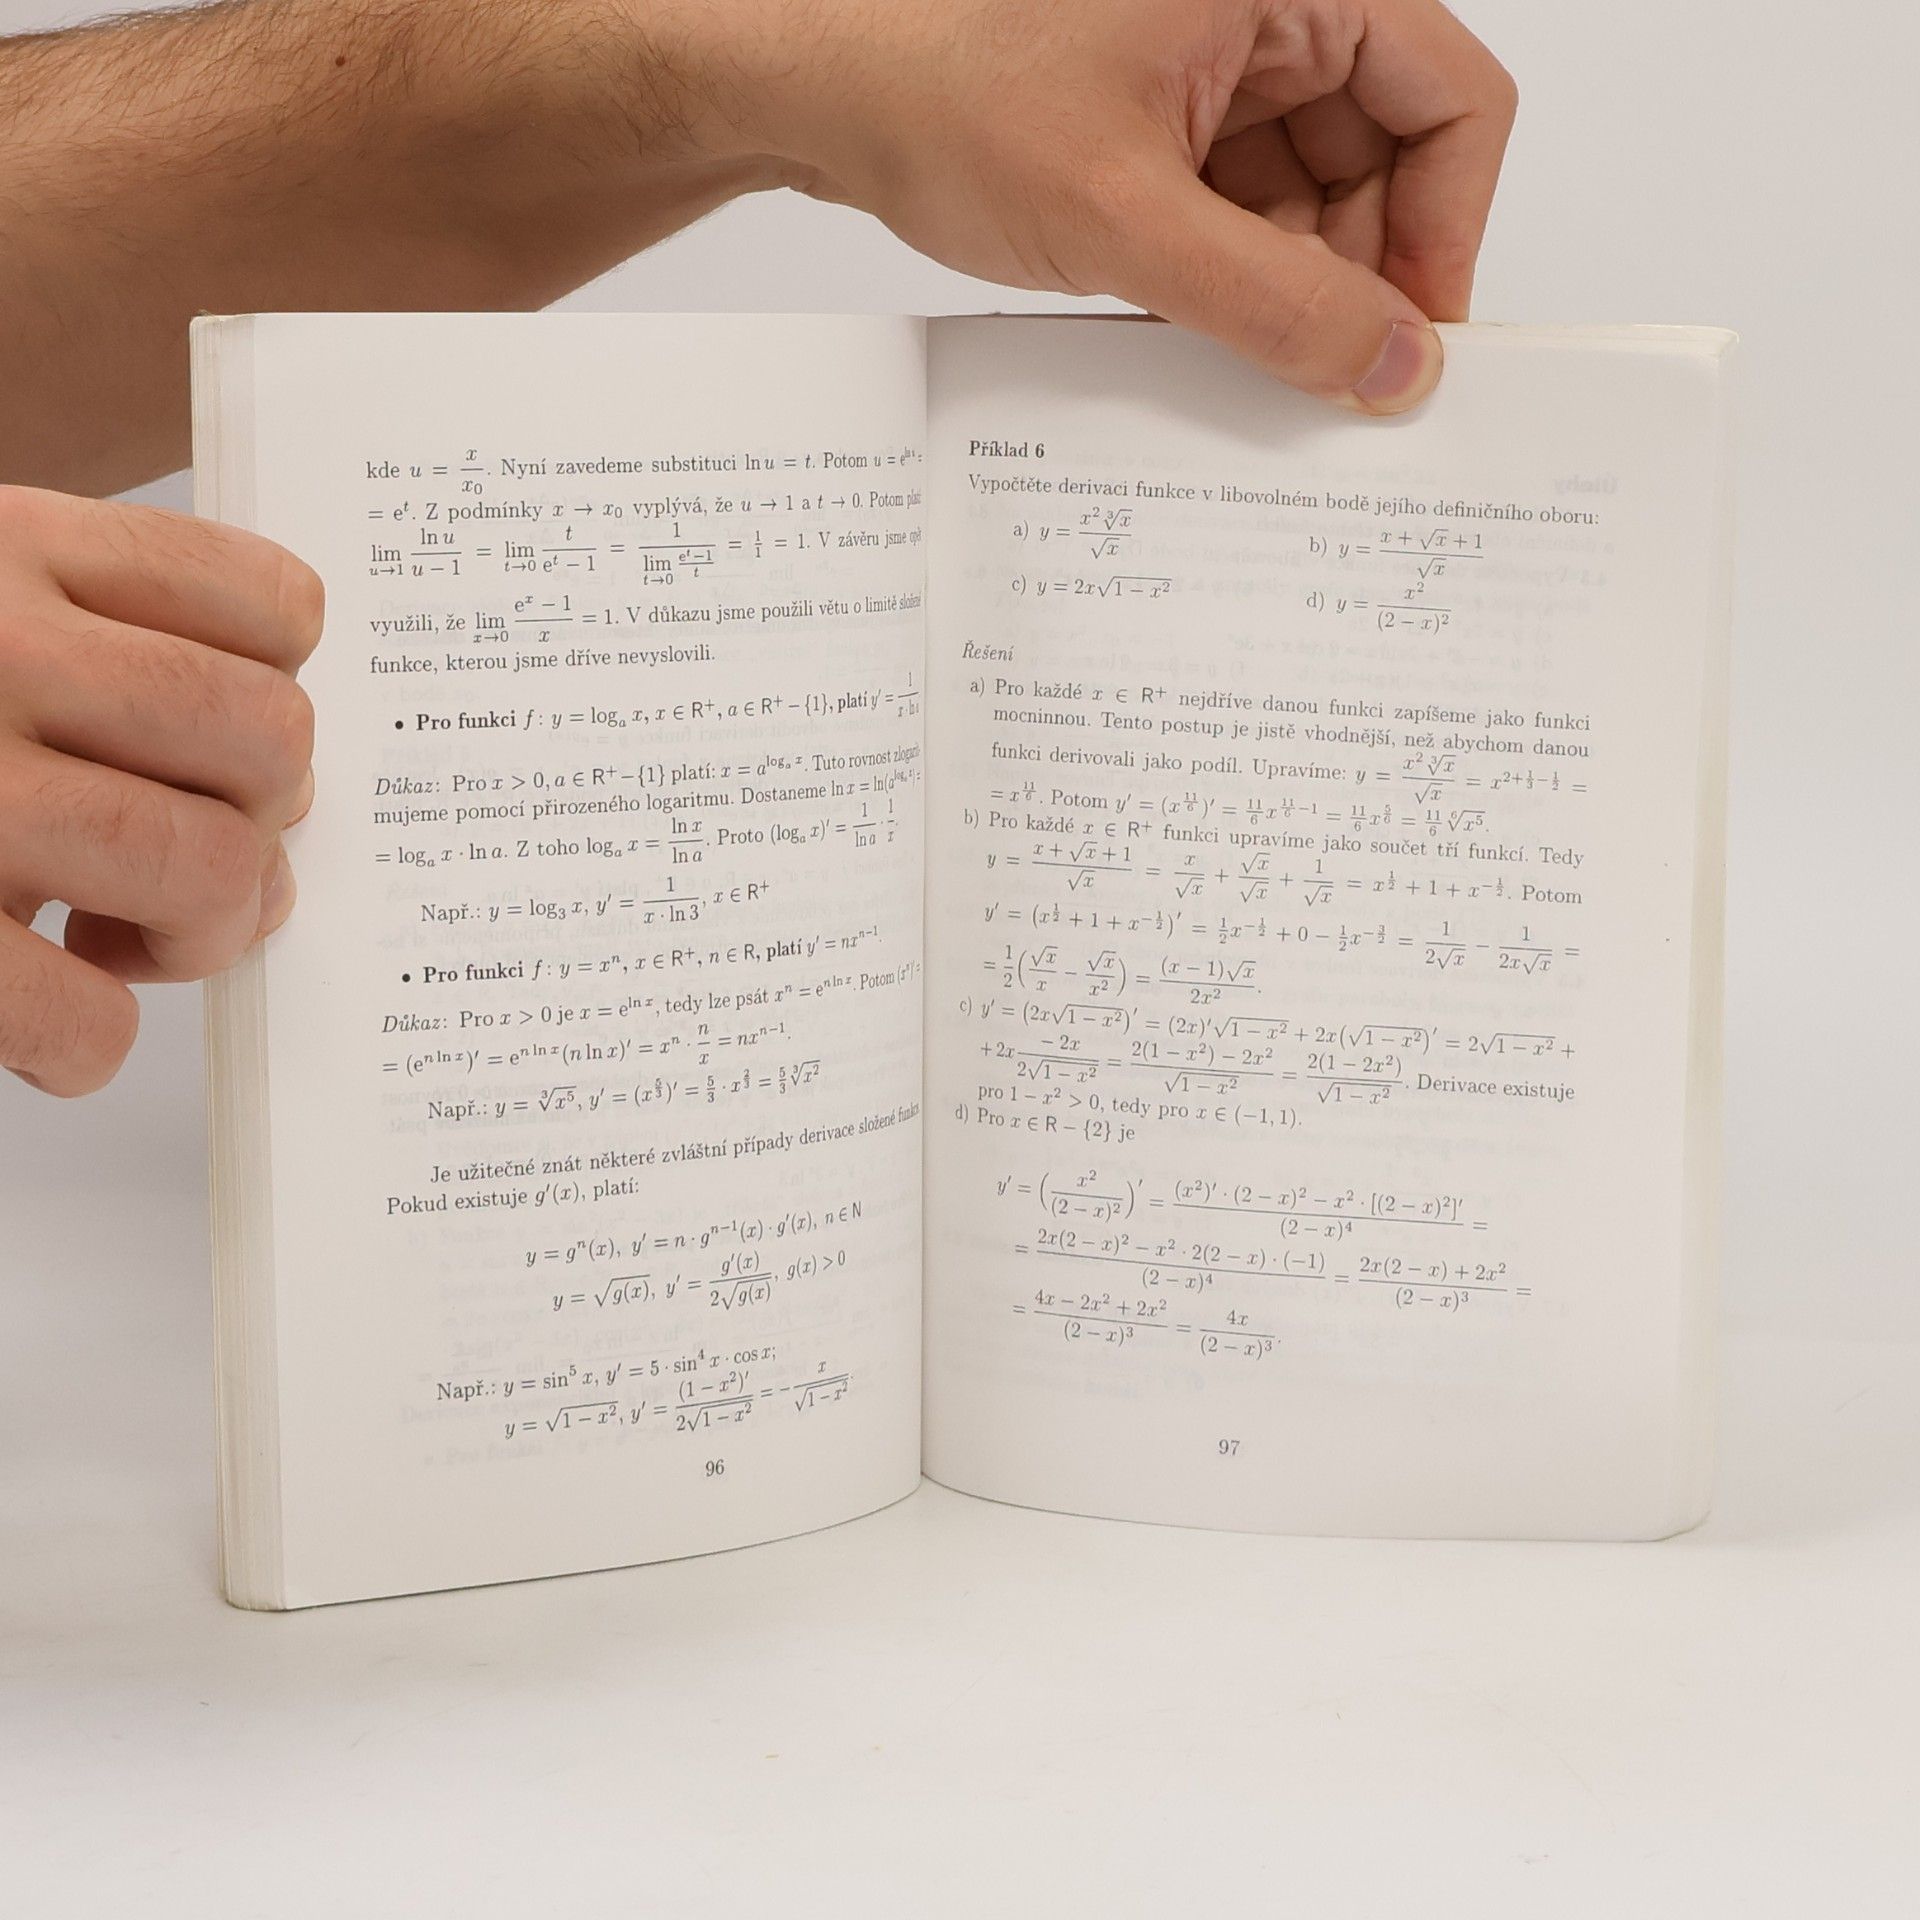 kde u = x/x₀. Nyní zavedeme substituci ln u = t. Potom u = e^{ln u} =
= e^t. Z podmínky x → x₀ vyplývá, že u → 1 a t → 0. Potom platí
lim_{u→1} (ln u)/(u − 1) = lim_{t→0} t/(e^t − 1) = 1/(lim_{t→0} (e^t−1)/t) = 1/1 = 1. V závěru jsme opět
využili, že lim_{x→0} (e^x − 1)/x = 1. V důkazu jsme použili větu o limitě složené
funkce, kterou jsme dříve nevyslovili.
• Pro funkci f: y = log_a x, x ∈ R⁺, a ∈ R⁺ − {1}, platí y′ = 1/(x·ln a)
Důkaz: Pro x > 0, a ∈ R⁺−{1} platí: x = a^{log_a x}. Tuto rovnost
mujeme pomocí přirozeného logaritmu. Dostaneme ln x = ln(a^{log_a x}) =
= log_a x · ln a. Z toho log_a x = (ln x)/(ln a). Proto (log_a x)′ = 1/(ln a) · 1/x.
Např.: y = log₃ x, y′ = 1/(x · ln 3), x ∈ R⁺
• Pro funkci f: y = x^n, x ∈ R⁺, n ∈ R, platí y′ = nx^{n−1}.
Důkaz: Pro x > 0 je x = e^{ln x}, tedy lze psát x^n = e^{n ln x}. Potom (x^n)′ =
= (e^{n ln x})′ = e^{n ln x}(n ln x)′ = x^n · n/x = nx^{n−1}.
Např.: y = ∛(x⁵), y′ = (x^{5/3})′ = 5/3 · x^{2/3} = 5/3 ∛(x²)
Je užitečné znát některé zvláštní případy derivace složené funkce
Pokud existuje g′(x), platí:
y = g^n(x), y′ = n · g^{n−1}(x) · g′(x), n ∈ N
y = √(g(x)), y′ = g′(x)/(2√(g(x))), g(x) > 0
Např.: y = sin⁵ x, y′ = 5 · sin⁴ x · cos x;
y = √(1 − x²), y′ = (1 − x²)′/(2√(1 − x²)) = − x/√(1 − x²).
96
Příklad 6
Vypočtěte derivaci funkce v libovolném bodě jejího definičního oboru:
a) y = (x² ∛x)/√x b) y = (x + √x + 1)/√x
c) y = 2x√(1 − x²) d) y = x²/(2 − x)²
Řešení
a) Pro každé x ∈ R⁺ nejdříve danou funkci zapíšeme jako funkci
mocninnou. Tento postup je jistě vhodnější, než abychom danou
funkci derivovali jako podíl. Upravíme: y = (x² ∛x)/√x = x^{2+1/3−1/2} =
= x^{11/6}. Potom y′ = (x^{11/6})′ = 11/6 x^{11/6−1} = 11/6 x^{5/6} = 11/6 ⁶√(x⁵).
b) Pro každé x ∈ R⁺ funkci upravíme jako součet tří funkcí. Tedy
y = (x + √x + 1)/√x = x/√x + √x/√x + 1/√x = x^{1/2} + 1 + x^{−1/2}. Potom
y′ = (x^{1/2} + 1 + x^{−1/2})′ = 1/2 x^{−1/2} + 0 − 1/2 x^{−3/2} = 1/(2√x) − 1/(2x√x) =
= 1/2(√x/x − √x/x²) = ((x − 1)√x)/(2x²).
c) y′ = (2x√(1 − x²))′ = (2x)′√(1 − x²) + 2x(√(1 − x²))′ = 2√(1 − x²) +
+ 2x (−2x)/(2√(1 − x²)) = (2(1 − x²) − 2x²)/√(1 − x²) = (2(1 − 2x²))/√(1 − x²). Derivace existuje
pro 1 − x² > 0, tedy pro x ∈ (−1, 1).
d) Pro x ∈ R − {2} je
y′ = (x²/(2 − x)²)′ = ((x²)′ · (2 − x)² − x² · [(2 − x)²]′)/(2 − x)⁴ =
= (2x(2 − x)² − x² · 2(2 − x) · (−1))/(2 − x)⁴ = (2x(2 − x) + 2x²)/(2 − x)³ =
= (4x − 2x² + 2x²)/(2 − x)³ = 4x/(2 − x)³.
97